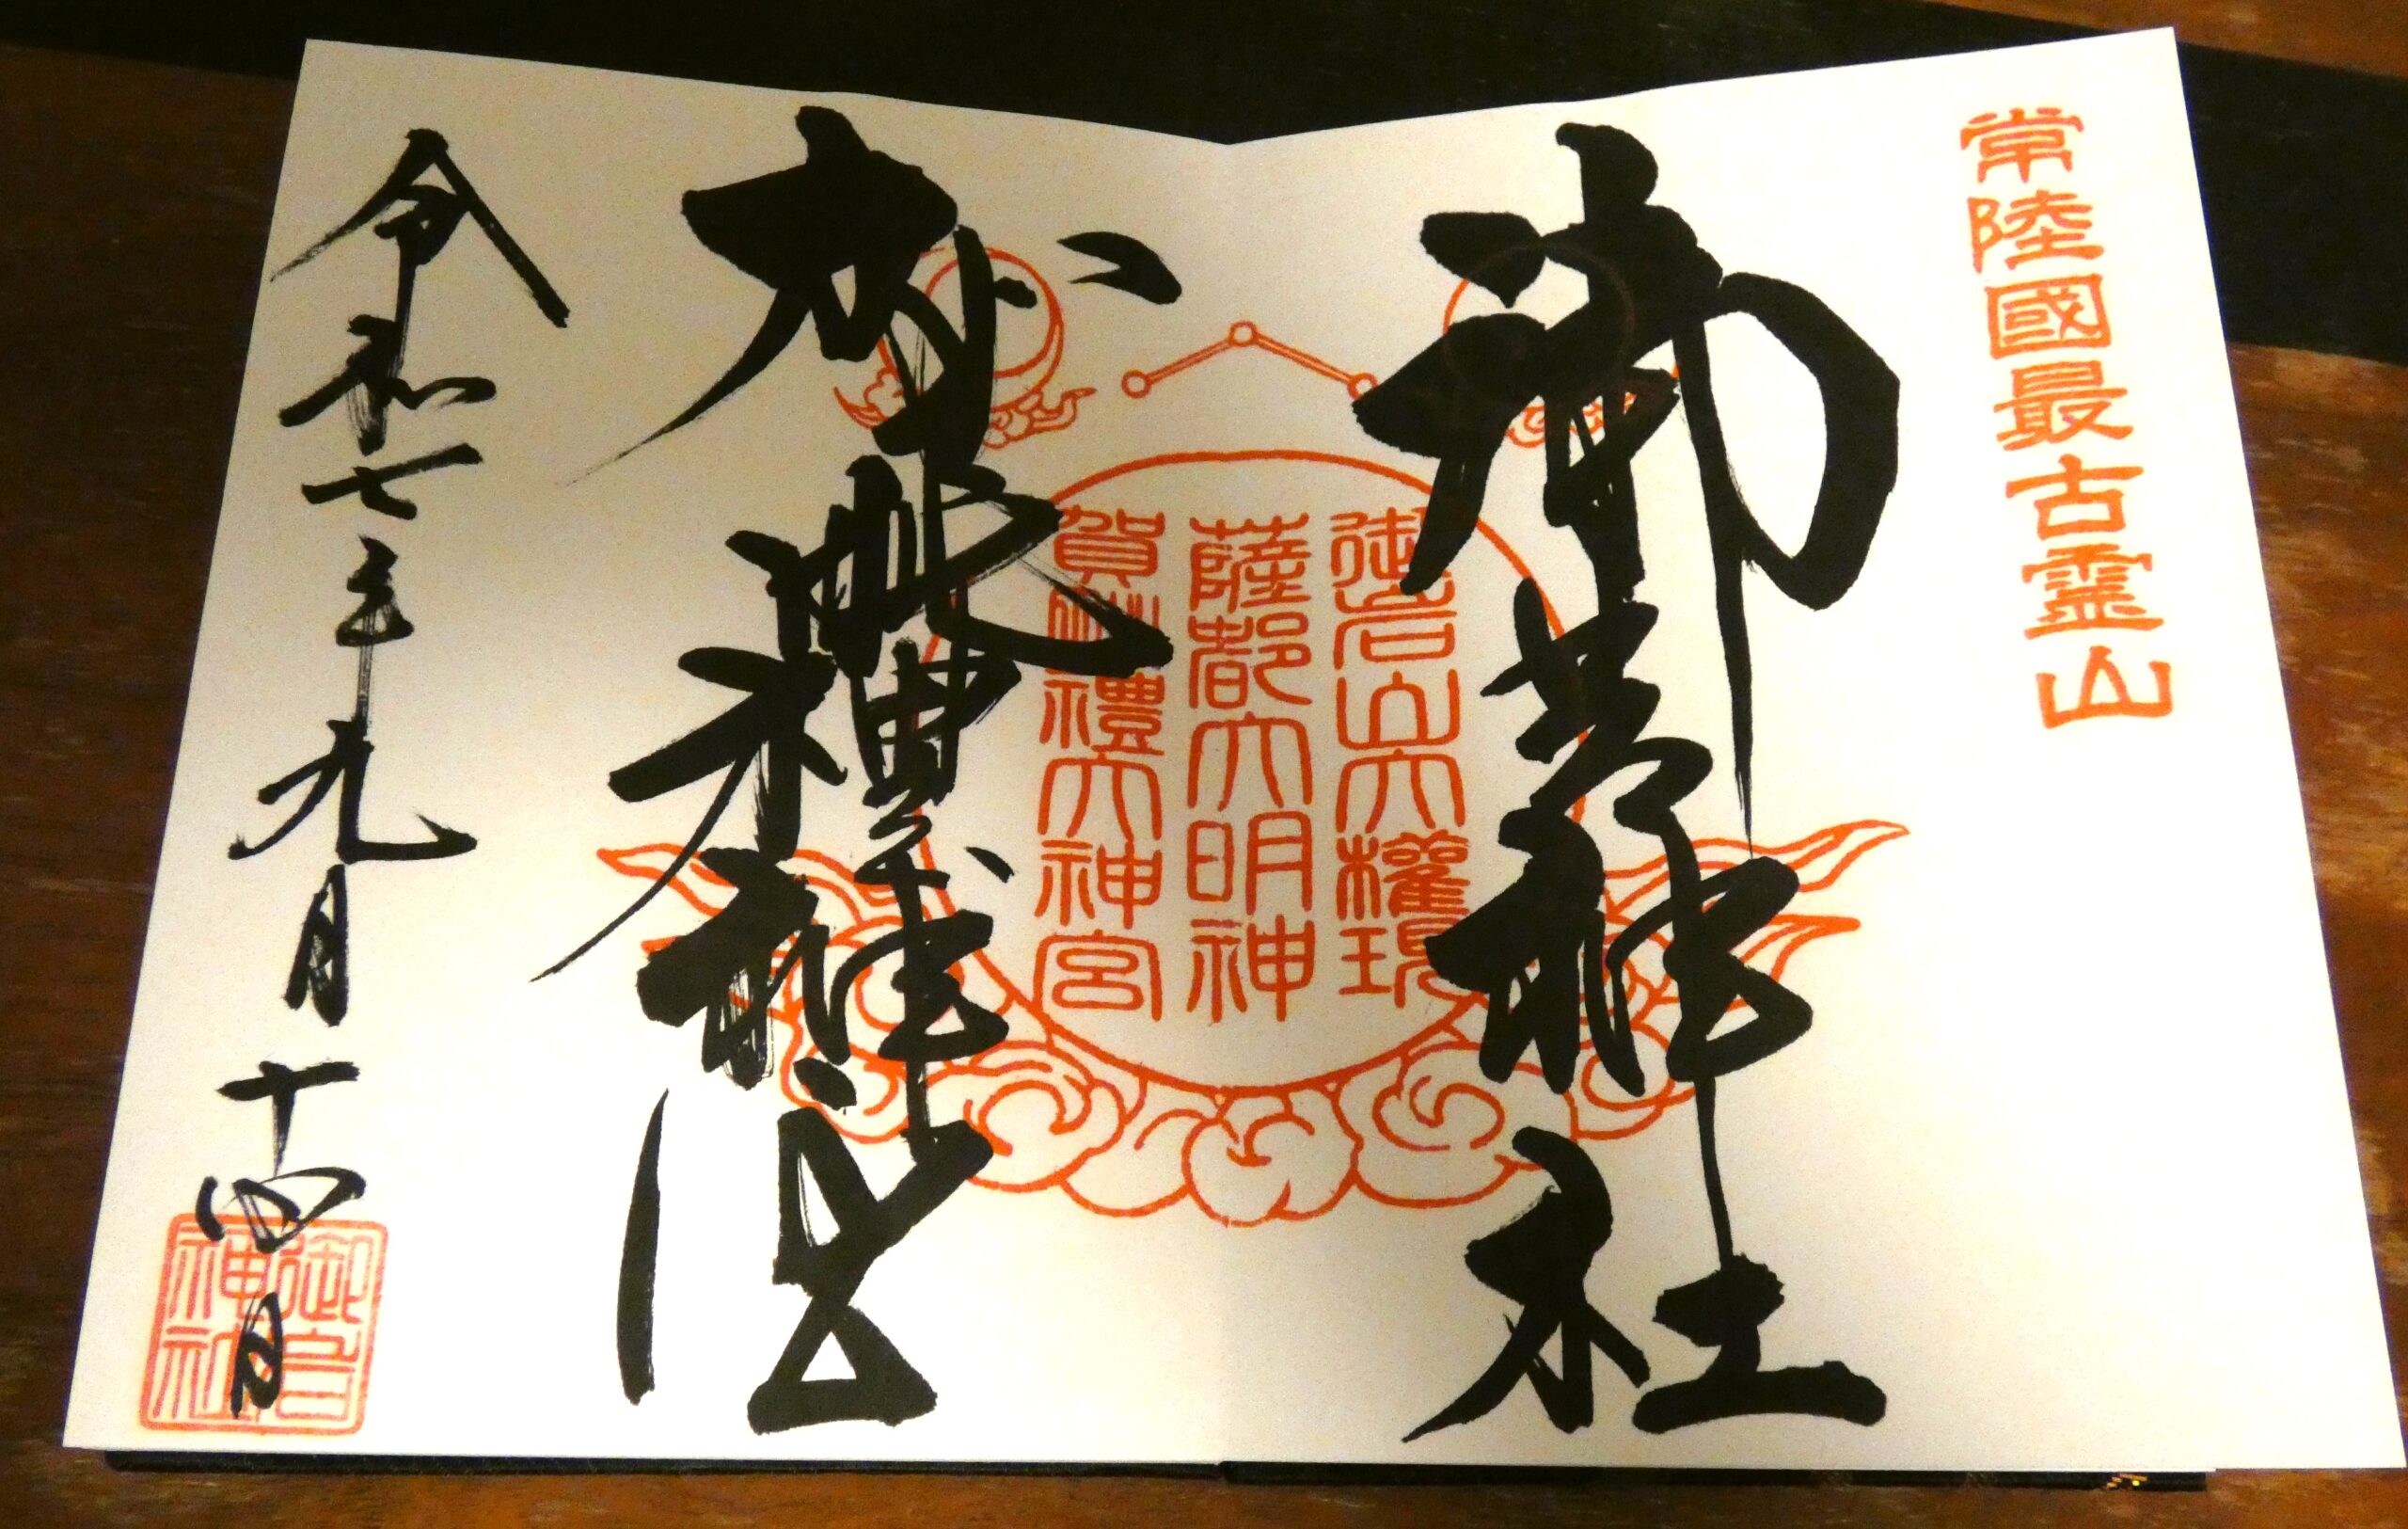 常陸國最古霊山
御岩神社
御岩山大権現
薩都大明神
賀毗禮大神宮
賀毗禮神宮
令和七年九月十四日
御岩
神社